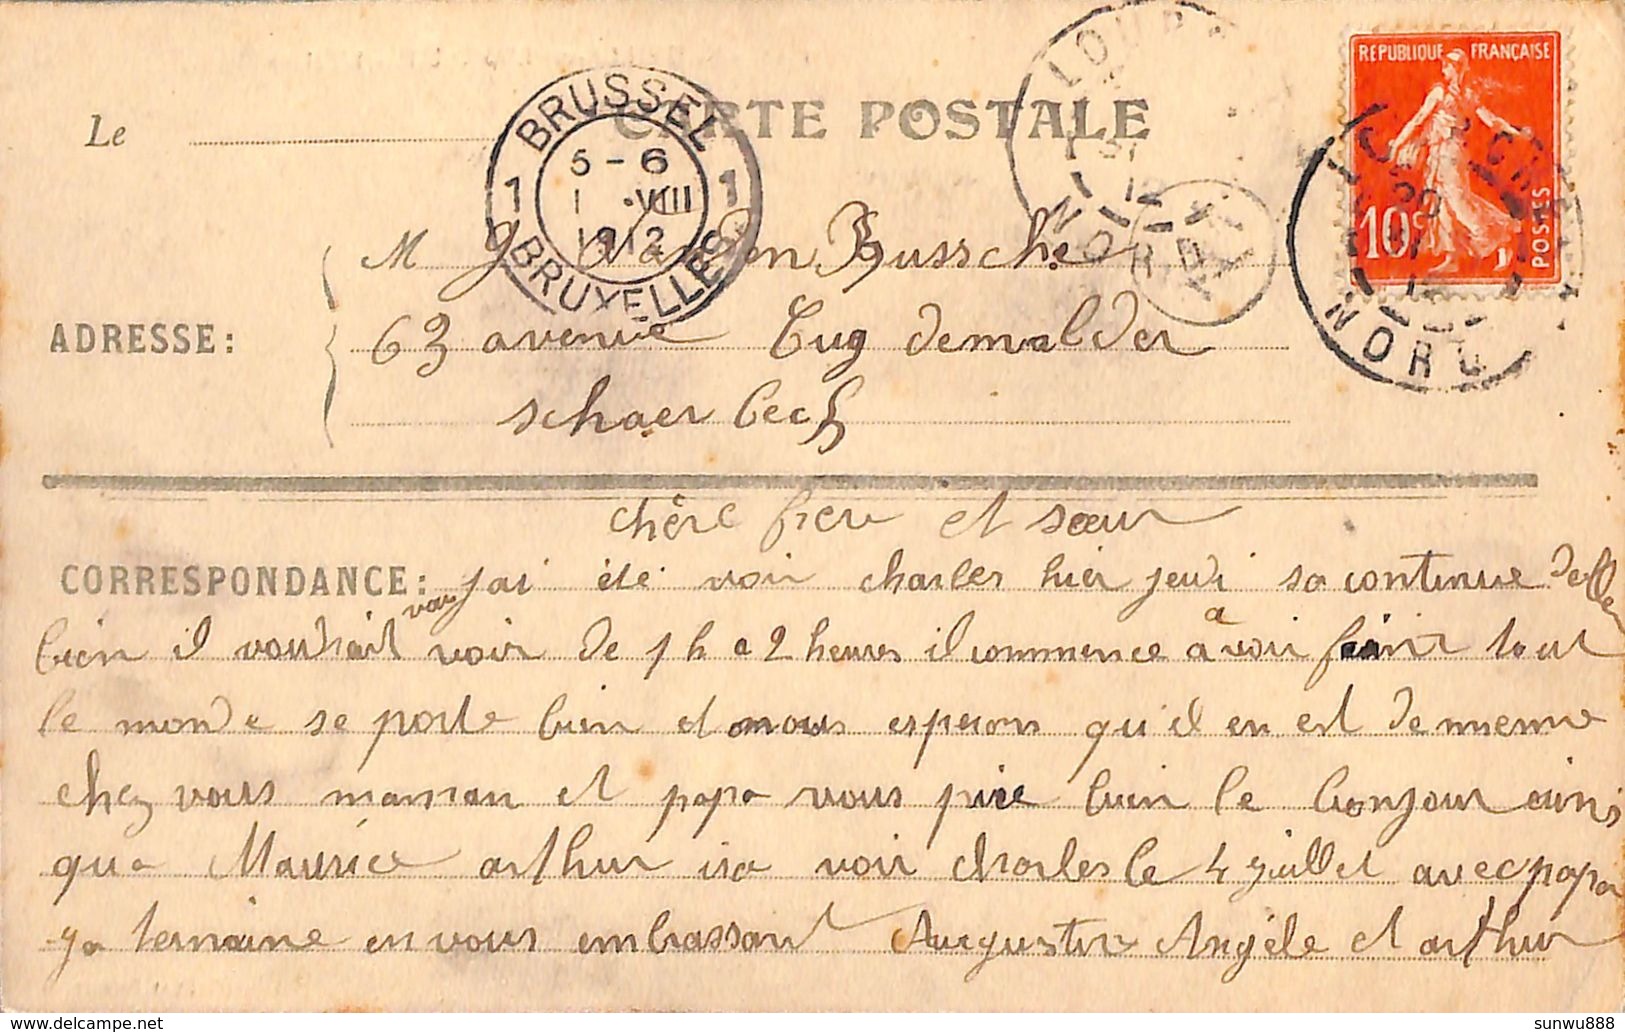 RÉPUBLIQUE FRANÇAISE
10c
POSTES
CARTE POSTALE
Le
BRUSSEL
5-6
1 VIII
1912
1 1
BRUXELLES
NORD
M Van den Bussche
ADRESSE: 63 avenue Eug demolder
schaerbech
chère frere et sœur
CORRESPONDANCE: jai été voir charles hier jeudi sa continue daller
bien il voudrait voir de 1 h a 2 heures il commence a avoir tout
le monde se porte bien et nous esperons qu'il en est de meme
chez vous maman et papa vous bien le bonjour ainsi
que Maurice arthur ira voir charles le 4 juillet avec papa
je termine en vous embrassant Augustine Angèle et arthur
sunwu888